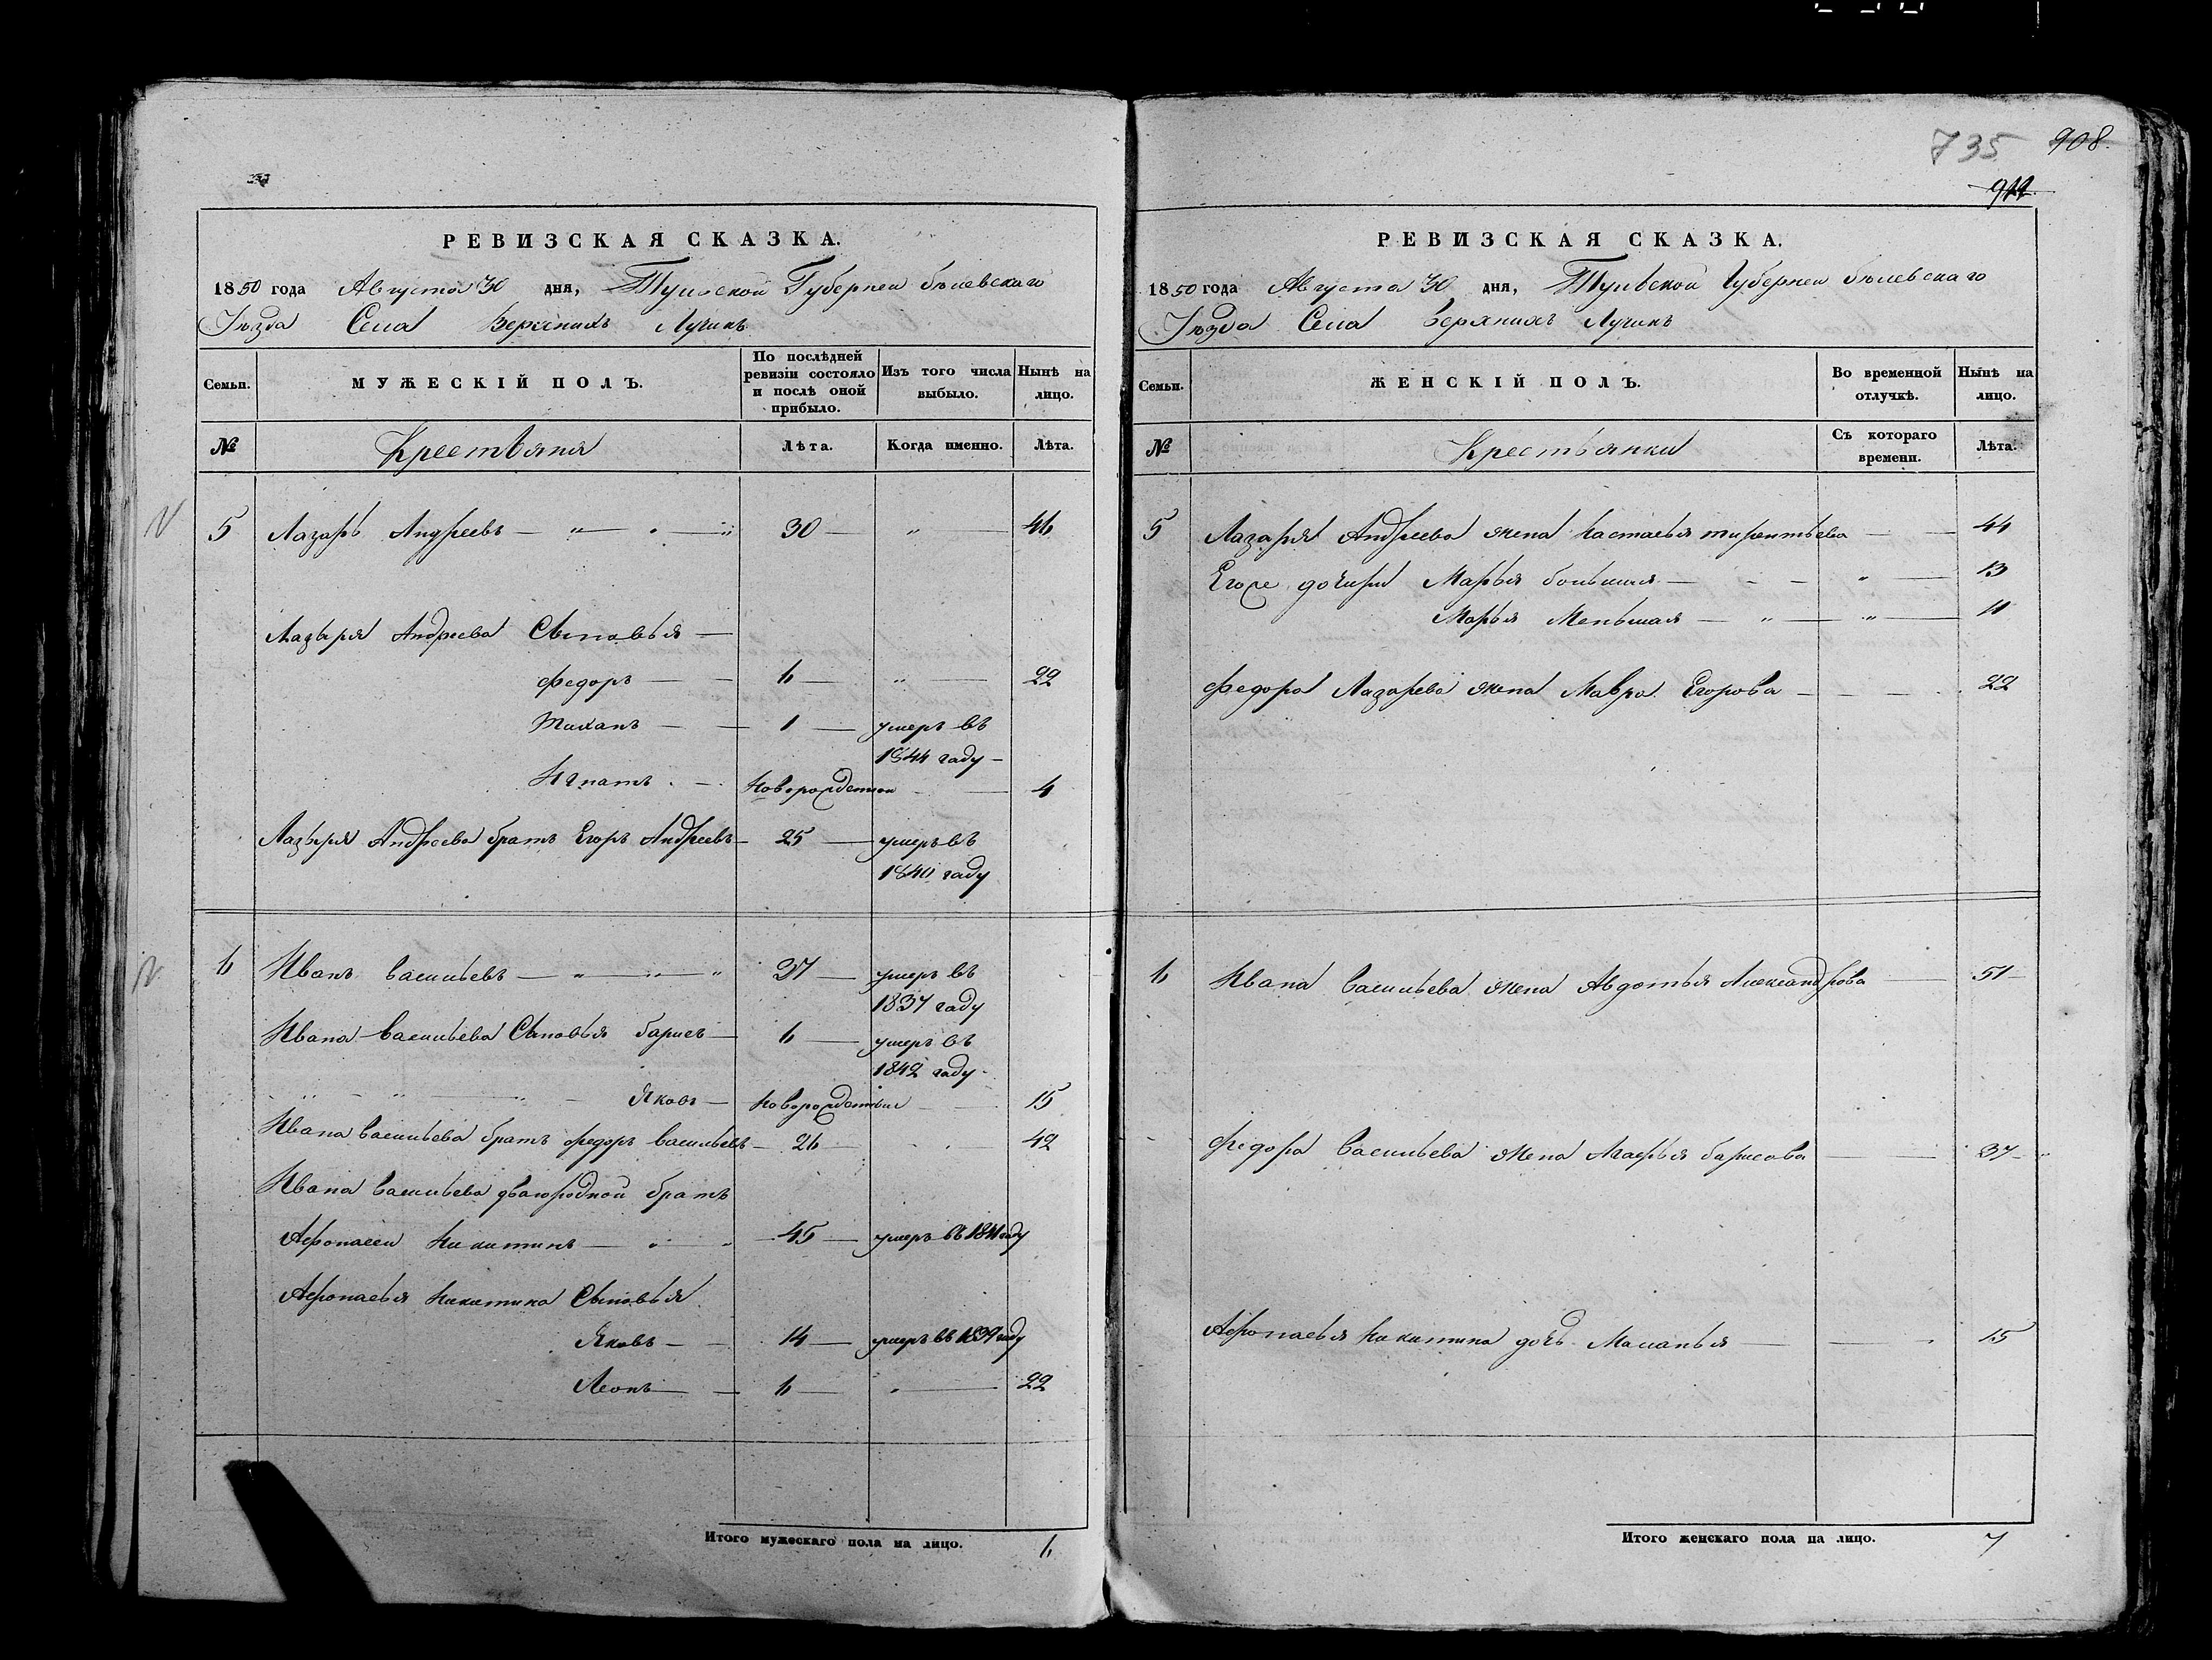 735 908.
911
РЕВИЗСКАЯ СКАЗКА.
1850 года Августа 30 дня, Тульской Губернеи белевскаго
Уѣзда Села Верхнихъ Лучикъ
Семьи. МУЖЕСКІЙ ПОЛЪ. По послѣдней ревизіи состояло и послѣ оной прибыло. Изъ того числа выбыло. Нынѣ на лицо.
№ Крестьяня Лѣта. Когда именно. Лѣта.
5 Лазарь Андреевъ — " — " — " 30 — " — 46
Лазыря Андреева Сыновья —
Федоръ — — 6 — " — 22
Тиханъ — — 1 — умеръ въ
1844 гаду —
Игнатъ — Новорожденной — 4
Лазыря Андреева братъ Егоръ Андреевъ — 25 — умеръ въ
1840 гаду
6 Иванъ васильевъ — " — " — " 37 — умеръ въ
1837 гаду
Ивана васильева Сыновья барисъ — 6 — умеръ въ
1842 гаду —
Яковъ — Новорожденныи — 15
Ивана васильева братъ федоръ васильевъ — 26 — 42
Ивана васильева двагородной братъ
Афонасеи Никитинъ — " — " — 45 — умеръ въ 1841 гаду
Афонасья Никитина Сыновья
Яковъ — — 14 — умеръ въ 1839 гаду
Леонъ — — 6 — " — 22
Итого мужескаго пола на лицо. 6
РЕВИЗСКАЯ СКАЗКА.
1850 года Августа 30 дня, Тульской Губернеи белевскаго
Уѣзда Села верхнихъ Лучикъ
Семьи. ЖЕНСКІЙ ПОЛЪ. Во временной отлучкѣ. Нынѣ на лицо.
№ Крестьянки Съ котораго времени. Лѣта.
5 Лазаря Андреева жена Настасья тирентьева — — 44
Егоже дочири Марья большия — — — " — 13
Марья Меньшая — " — " — 11
федора Лазарева жена Мавра Егорова — — — 22
6 Ивана васильева жена Авдотья Александрова — 51
федора васильева жена Марья барисова — — 37
Афонасья Никитина дочь Маланья — — 15
Итого женскаго пола на лицо. 7